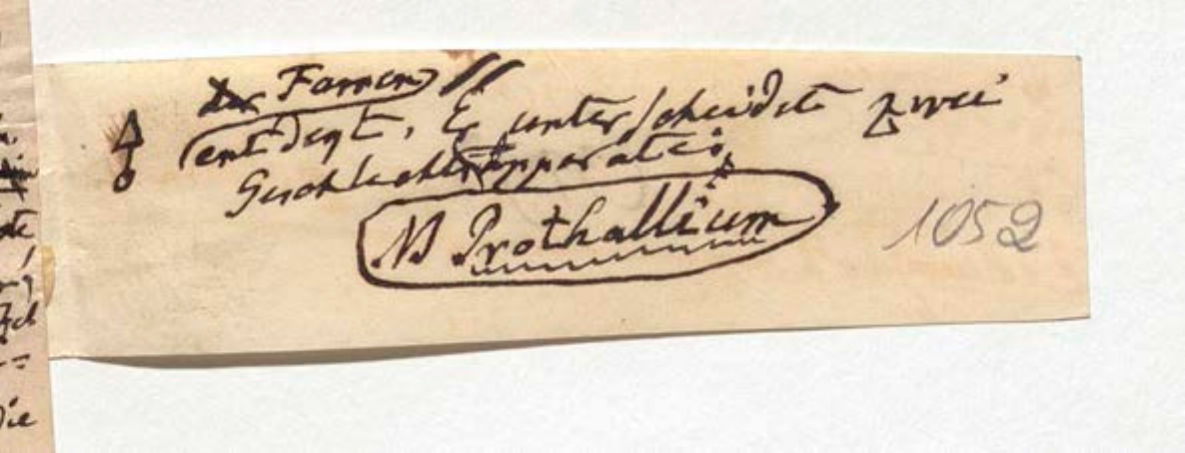 Farren
entdeqt, Er unterscheidet zwei
Geschlechtsapparate:
NB Prothallium
1052